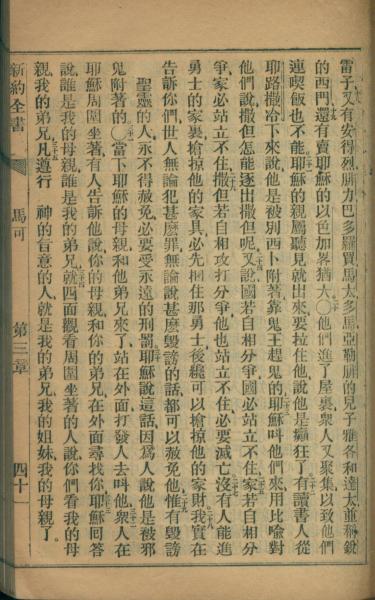 雷子又有安得烈腓力巴多羅買馬太多馬亞勒腓的兒子雅各和達太並稱銳
的西門還有賣耶穌的以色加畧猶大〇他們進了屋裏衆人又聚集以致他們
連喫飯也不能耶穌的親屬聽見就出來要拉住他說他是癲狂了有讀書人從
耶路撒冷下來說他是被別西卜附著靠鬼王趕鬼的耶穌叫他們來用比喻對
他們說撒但怎能逐出撒但呢又說國若自相分爭國必站立不住家若自相分
爭家必站立不住撒但若自相攻打分爭他也站立不住必要滅亡沒有人能進
勇士的家裏槍掠他的家具必先捆住那勇士後纔可以槍掠他的家財我實在
告訴你們世人無論犯甚麼罪無論說甚麼毀謗的話都可以赦免他惟有毀謗
聖靈的人永不得赦免必要受永遠的刑罰耶穌說這話因爲人說他是被邪
鬼附著的〇當下耶穌的母親和他弟兄來了站在外面打發人去叫他衆人在
耶穌周圍坐著有人告訴他說你的母親和你的弟兄在外面尋找你耶穌回答
說誰是我的母親誰是我的弟兄就四面觀看周圍坐著的人說你們看我的母
親我的弟兄凡遵行 神的旨意的人就是我的弟兄我的姐妹我的母親了
新約全書 馬可 第三章 四十一